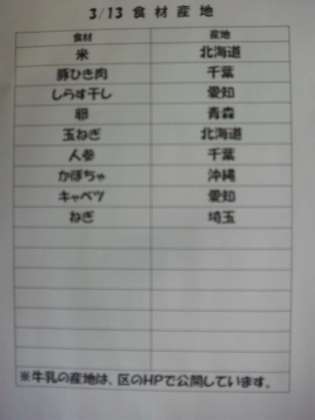 3/13 食材産地
食材 産地
米 北海道
豚ひき肉 千葉
しらす干し 愛知
卵 青森
玉ねぎ 北海道
人参 千葉
かぼちゃ 沖縄
キャベツ 愛知
ねぎ 埼玉
※牛乳の産地は、区のHPで公開しています。